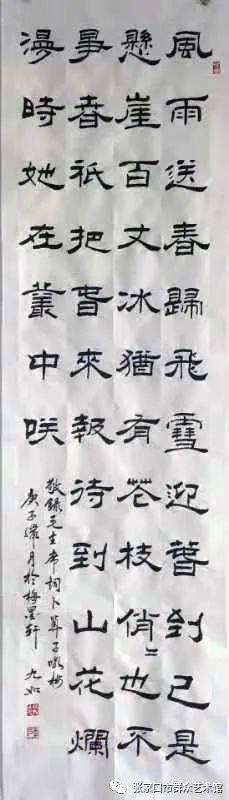 風雨送春歸飛雪迎春到已是
懸崖百丈冰猶有花枝俏〻也不
爭春祗把春來報待到山花爛
漫時她在叢中咲
敬錄毛主席詞卜算子咏梅
庚子臘月於梅墨軒 九如
张家口市群众艺术馆